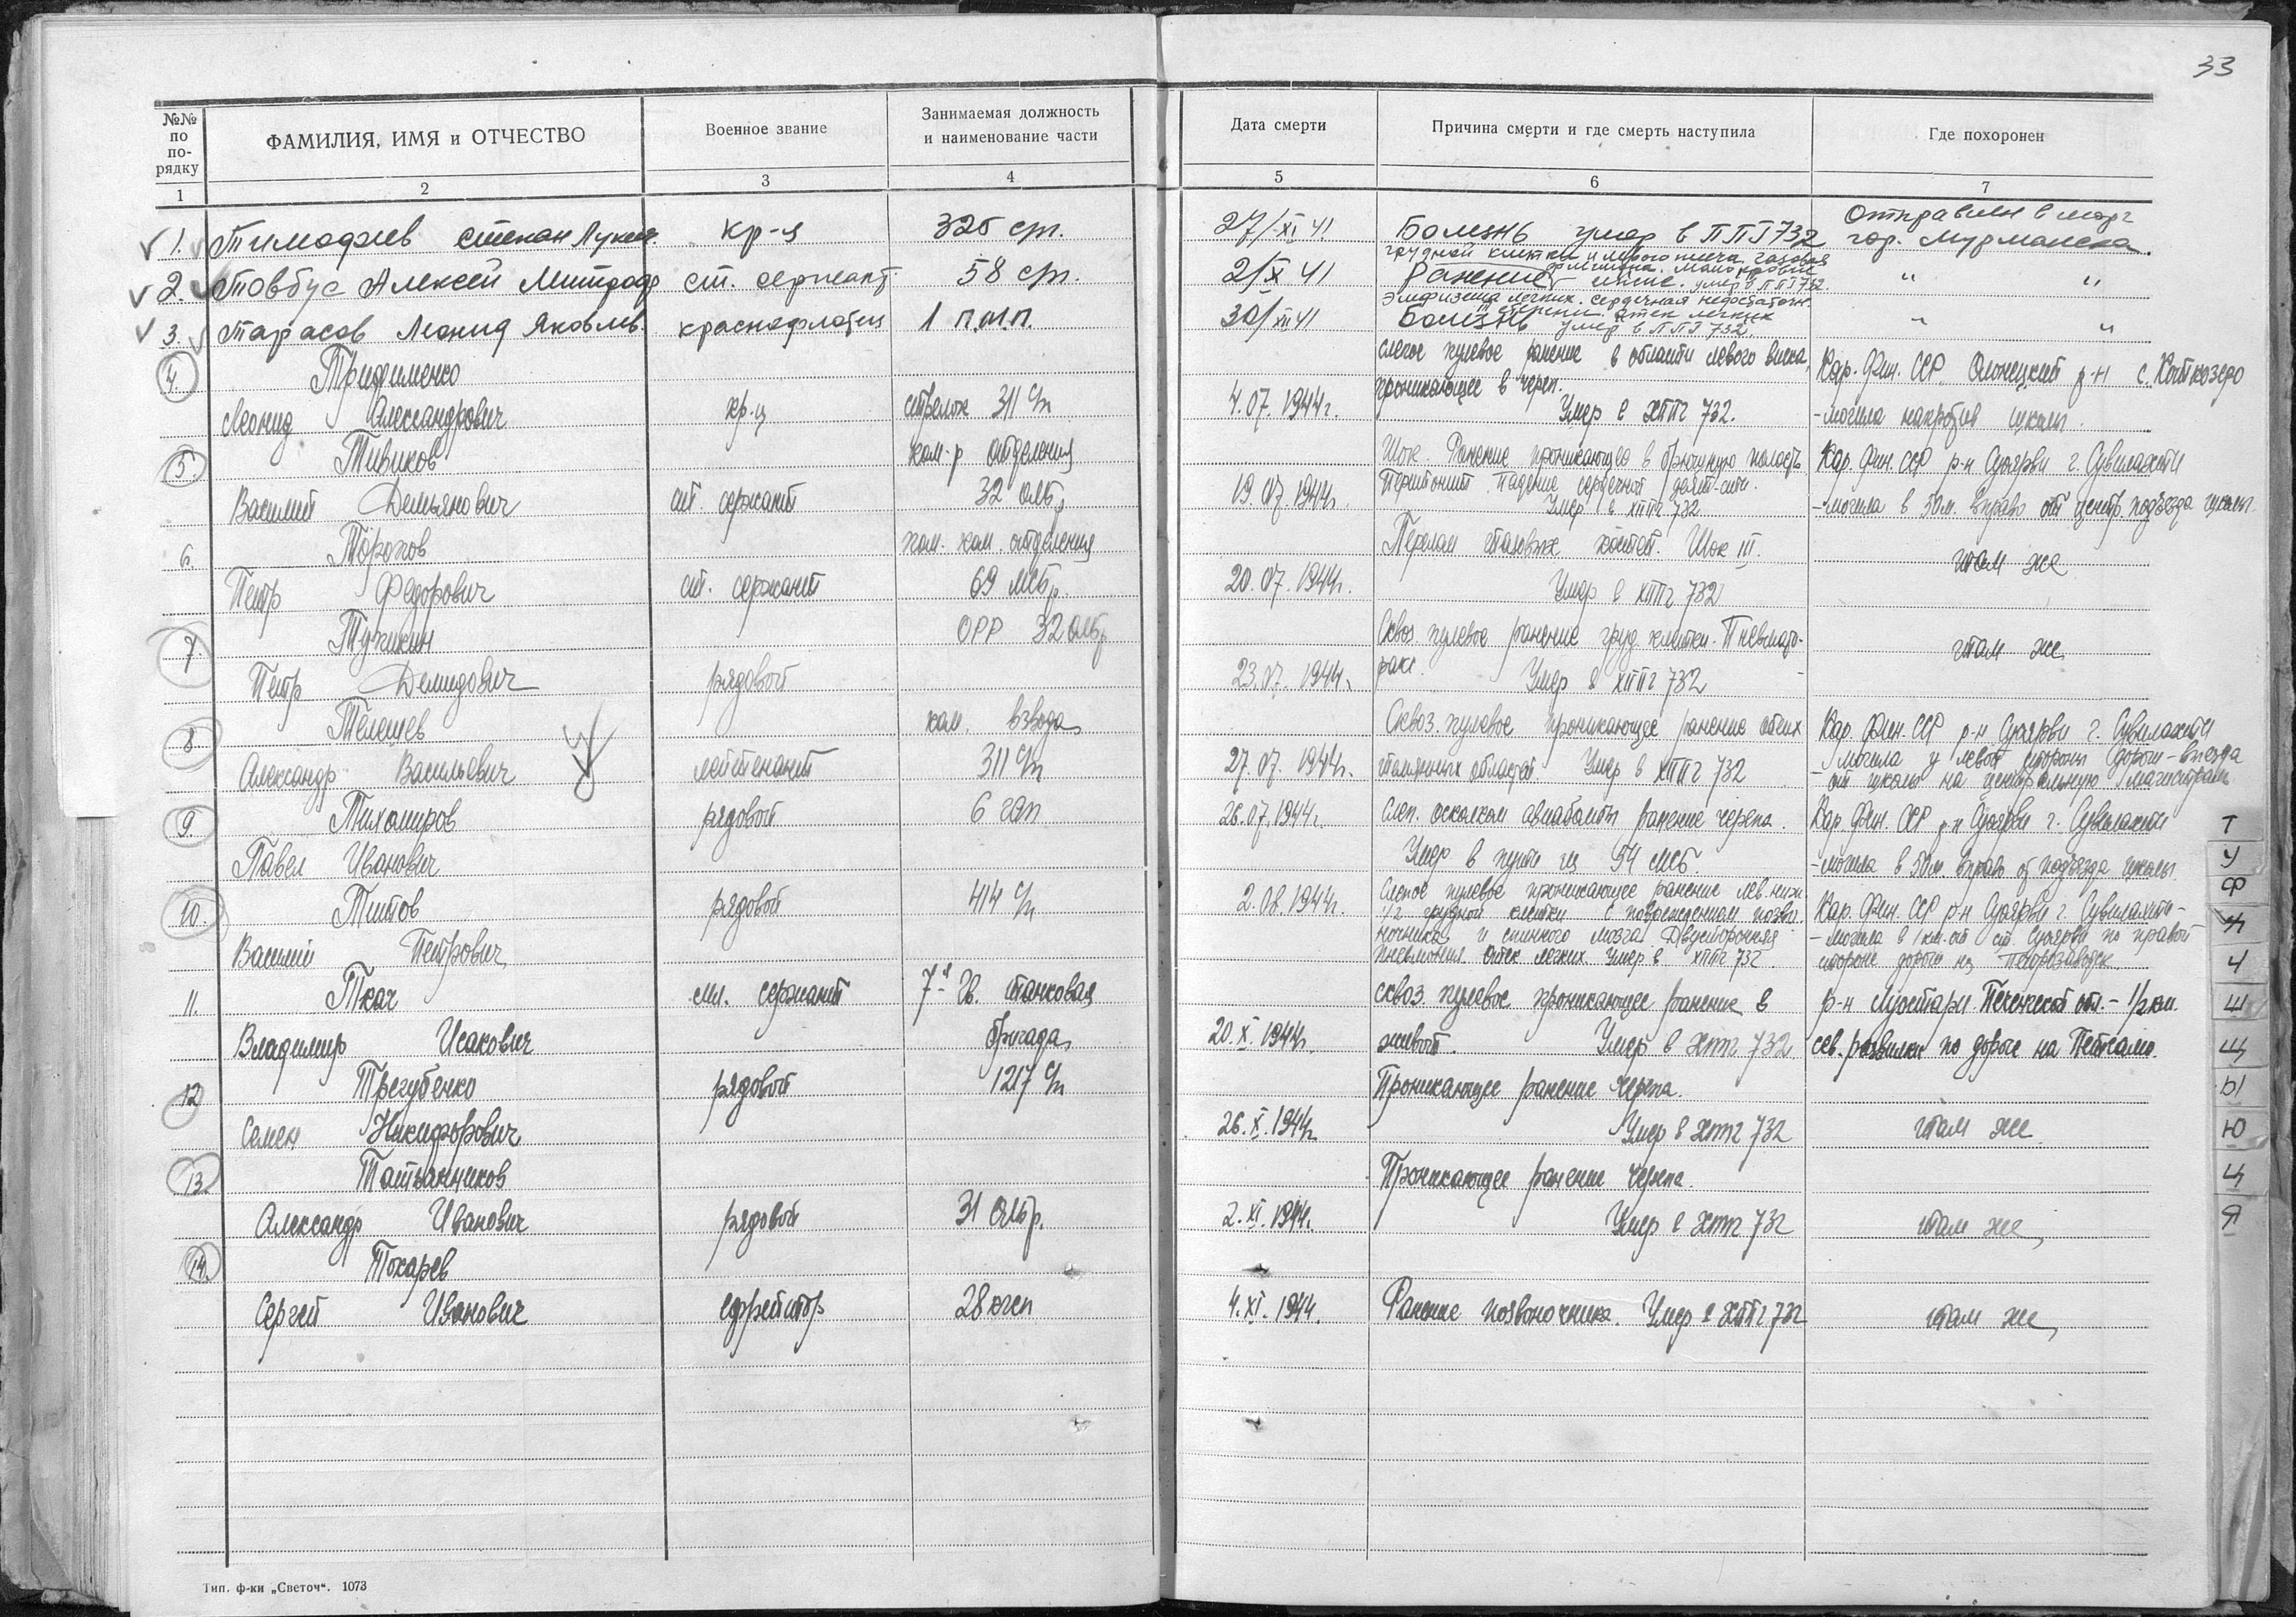 33
№№ по по-рядку
ФАМИЛИЯ, ИМЯ и ОТЧЕСТВО
Военное звание
Занимаемая должность и наименование части
Дата смерти
Причина смерти и где смерть наступила
Где похоронен
1 2 3 4 5 6 7
Отправлен в морг
1. Тимофеев Степан Лукич кр-ц 325 сп. 27/XI 41 Болезнь умер в ППГ 732 гор. Мурманска.
грудной клетки и левого плеча газовая
2. Товбус Алексей Митроф ст. сержант 58 сп. 2/X 41 Ранение умер в ППГ 732 " "
Эмфизема легких. Сердечная недостаточн.
отек легких
3. Тарасов Леонид Яковлев. краснофлотец 1 п.м.п. 30/XII 41 Болезнь умер в ППГ 732. " "
слепое пулевое ранение в области левого виска,
4. Трифименко проникающее в череп. Кар. Фин. ССР. Олонецкий р-н с. Коткозеро
Леонид Александрович кр-ц стрелок 311 сп 4.07.1944г. Умер в ХППГ 732. - могила напротив школы.
5. Тивиков ком-р отделения Шок. Ранение проникающее в брюшную полость Кар. Фин. ССР р-н Суоярви г. Сувилахти
Перитонит. Падение сердечной деят-сти.
Василий Демьянович ст. сержант 32 олбр 19.07.1944г. Умер в ХППГ 732 - могила в 50м. вправо от центр. подъезда школы.
6. Торопов пом. ком. отделения Перелом тазовых костей. Шок III. там же
Петр Федорович ст. сержант 69 мсбр. 20.07.1944г. Умер в ХППГ 732
7. Тупикин ОРР 32 олбр Сквоз. пулевое ранение груд. клетки. Пневмото- там же
ракс.
Петр Демидович рядовой 23.07.1944г. Умер в ХППГ 732
8. Телешев ком. взвода Сквоз. пулевое проникающее ранение обеих Кар. Фин. ССР р-н Суоярви г. Сувилахти
- могила у левой стороны дороги - въезда
Александр Васильевич лейтенант 311 сп 27.07.1944г. Умер в ХППГ 732 - от школы на центральную магистраль
9. Тихомиров рядовой 6 гап 26.07.1944г. Слеп. осколком авиабомбы ранение черепа. Кар. Фин. ССР р-н Суоярви г. Сувилахти
Павел Иванович Умер в пути из 54 МСБ. - могила в 50м. вправо от подъезда школы.
10. Титов рядовой 414 сп 2.08.1944г. Слепое пулевое проникающее ранение лев. ниж.
1/2 грудной клетки с повреждением позво- Кар. Фин. ССР р-н Суоярви г. Сувилахти -
ночника и спинного мозга. Двусторонняя - могила в 1 км. от ст. Суоярви по правой
Василий Петрович пневмония. Отек легких. Умер в ХППГ 732. стороне дороги на Петрозаводск.
11. Ткач мл. сержант 7я Гв. танковая сквоз. пулевое проникающее ранение в р-н Луостари Печенгской обл. - 1/2 км.
Владимир Исакович бригада 20.X.1944г. живот. Умер в ХППГ 732 сев. развилки по дороге на Петсамо.
12. Трегубенко рядовой 1217 сп Проникающее ранение черепа.
Семен Никифорович 26.X.1944г. Умер в ХППГ 732 там же
13. Татьянников Проникающее ранение черепа.
Александр Иванович рядовой 31 олбр. 2.XI.1944г. Умер в ХППГ 732 там же
14. Токарев
Сергей Иванович ефрейтор 28 кген 4.XI.1944. Ранение позвоночника. Умер в ХППГ 732 там же
Т
У
Ф
Ч
Ш
Щ
Ы
Ю
Ц
Я
Тип. ф-ки „Светоч“. 1073